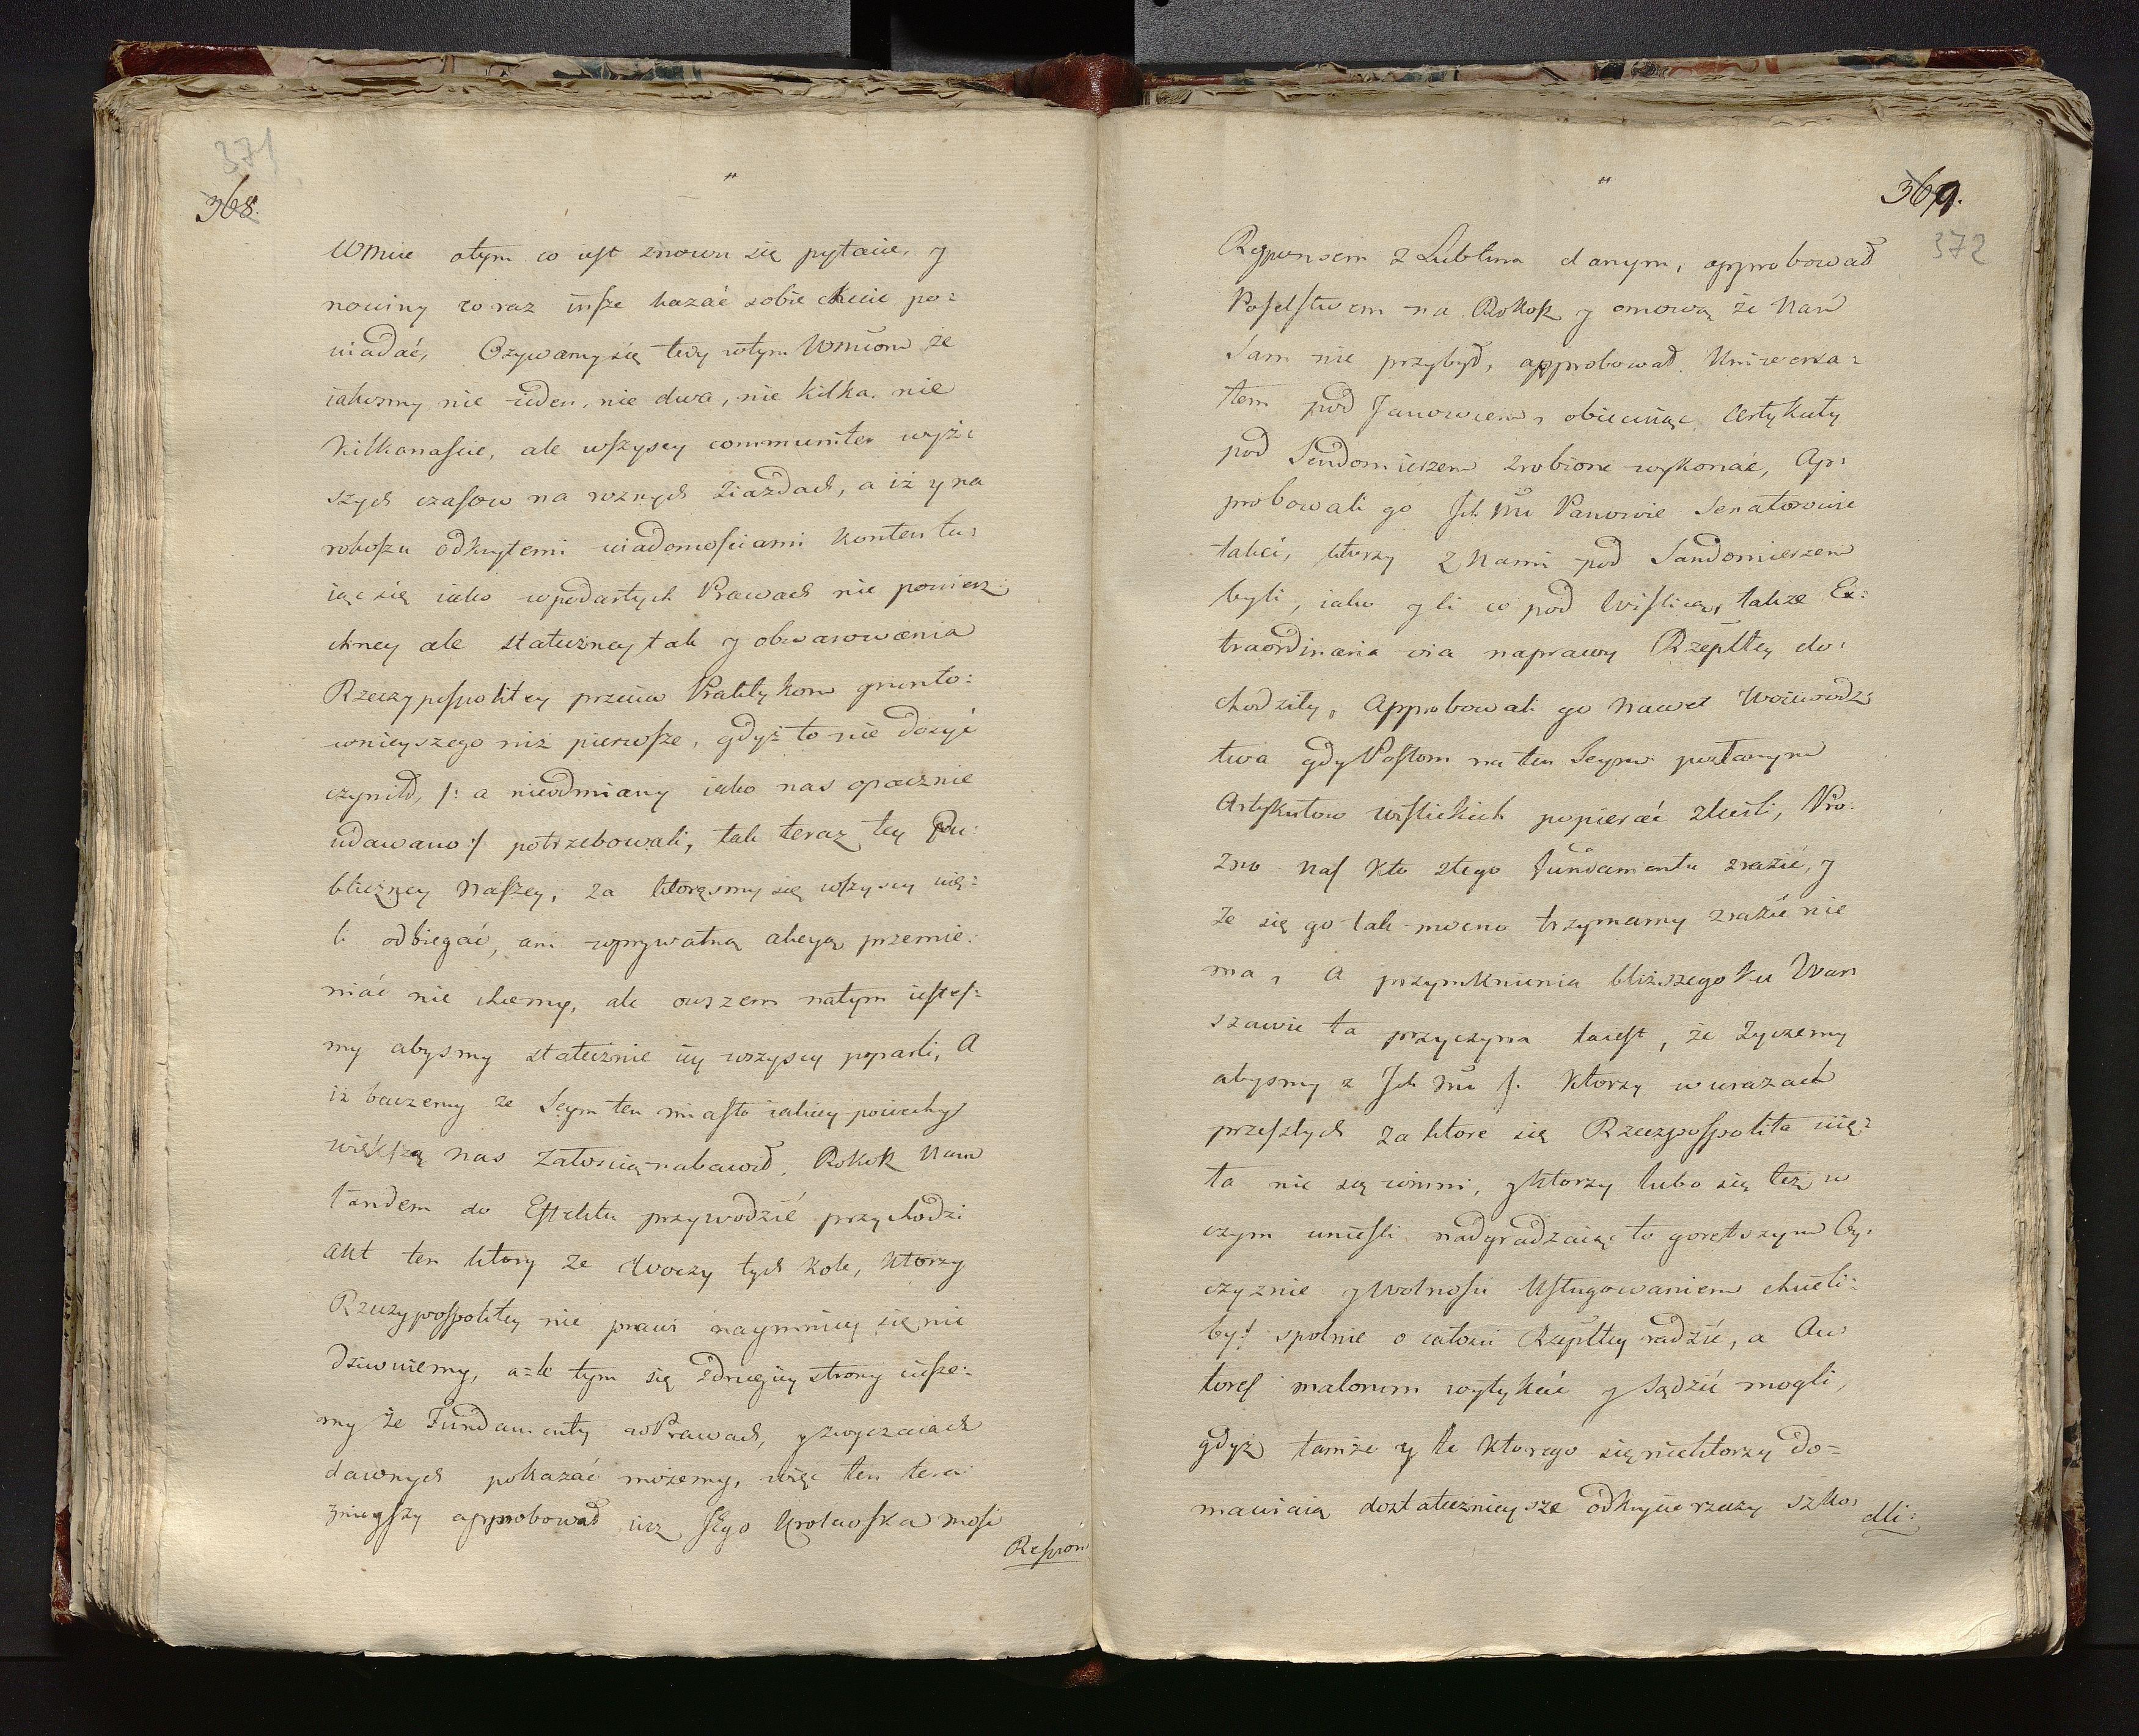 371
368.
"
WMcie otym co iest znowu się pytacie, y
nowiny co raz insze kazać sobie chcecie po=
wiadać, Ozywamy się tedy wtym WMciom że
iakosmy nie ieden, nie dwa, nie kilka, nie
kilkanascie, ale wszyscy communiter wyż=
szych czasow na roznych Ziazdach, a iż y na
rokoszu odkrytemi wiadomosciami kontentu=
iąc się iako wpodartych Prawach nie powierz=
chney ale statecżney tak y obwarowania
Rzeczypospolitey przeciw Praktykom grunto=
wnieyszego niż pierwsze, gdyż to nie dosyć
czynieło, /: a nieodmiany iako nas opacznie
udawano :/ potrzebowali, tak teraz tey Pu=
blicżney Naszey, za ktorąsmy się wszyscy wię=
li odbiegać, ani wprywatną akcyą przemie=
niać nie chcemy, ale owszem natym iestes=
my abysmy statecżnie iey wszyscy poparli, A
iz baczemy ze Seym ten miasto iakiey pociechy
większą nas żałoscią nabawił, Rokosz Nam
tandem do Effektu przywodzić przychodzi
akt ten ktory ze w oczy tych kole, ktorzy
Rzeczypospolitey nie prawi naymniey się nie
dziwuiemy, a=le tym się zdrugiey strony ciesze=
my że Fundamenty w Prawach, y zwyczaiach
dawnych pokazać możemy, więc ten tera=
znieyszy approbował iuz Jego Krolewska Mosć
Respon=
"
369.
372
Responsem z Lublina danym, approbował
Poselstwem na Rokosz y omową że Nań
Sam nie przybył, approbował Uniwersa=
łem pod Janowcem, obiecuiąc Artykuły
pod Sendomierzem zrobione wykonać, Ap=
probowali go Ich Mć Panowie Senatorowie
takci, ktorzy z Nami pod Sandomierzem
byli, iako y ci co pod Wislicą, także Ex=
traordinaria via naprawy Rzepltey do=
chodzily, Approbowali go Nawet Woiewodz=
twa gdy Posłom na ten Seym posłanym
Artykułow wislickich popierać zlecili, Pro=
zno Nas kto ztego fundamentu zrazić, y
że się go tak mocno trzymamy zrazić nie
ma, A przymknienia bliższego ku War=
szawie ta przyczyna taiest, że Zyczemy
abysmy z Ich Mć J. ktorzy w urazach
przeszłych za ktore się Rzeczpospolita uię=
ła nie są winni, y ktorzy lubo się też w
czym uniesli nadgradzaiąc to gorętszym Oy=
czyznie y Wolnosci Usługowaniem chcieli=
by! spolnie o całosci Rzepltey radzić, a Au
tores malorum wytykać y sądzić mogli,
gdyż tamże y te ktorego się niektorzy do=
mawiaią dostatecżnieysze odkrycie rzeczy szko=
dli=